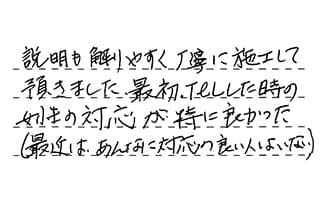 説明も解りやすく丁寧に施工して
頂きました。最初、TELした時の
女性の対応が特に良かった
(最近は、あんなに対応の良い人はいない)